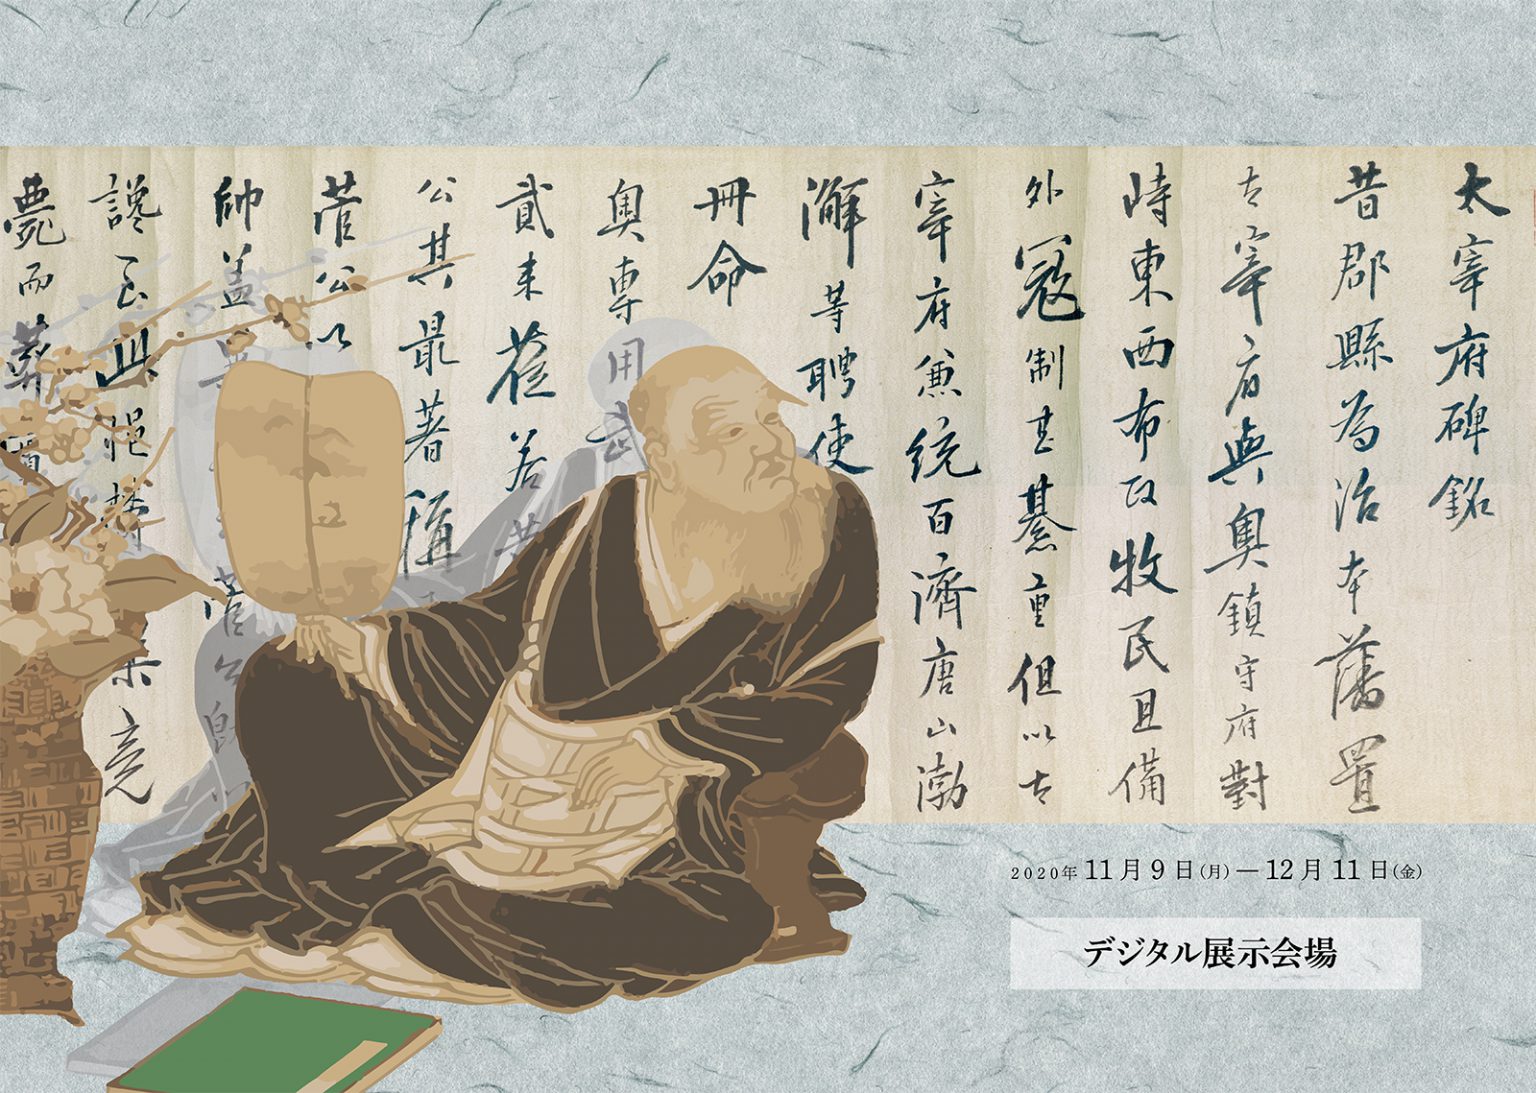 太宰府碑銘
昔郡縣為治本藩置
太宰府與奥鎮守府對
峙東西布政牧民且備
外寇制甚綦重但以太
宰府兼統百濟唐山渤
澥等聘使
冊命
奥専用武
貳来莅若菅
公其最著稱
菅公以
帥蓋 菅公
讒至此悒
薨而葬
2020年 11月9日(月)—12月11日(金)
デジタル展示会場